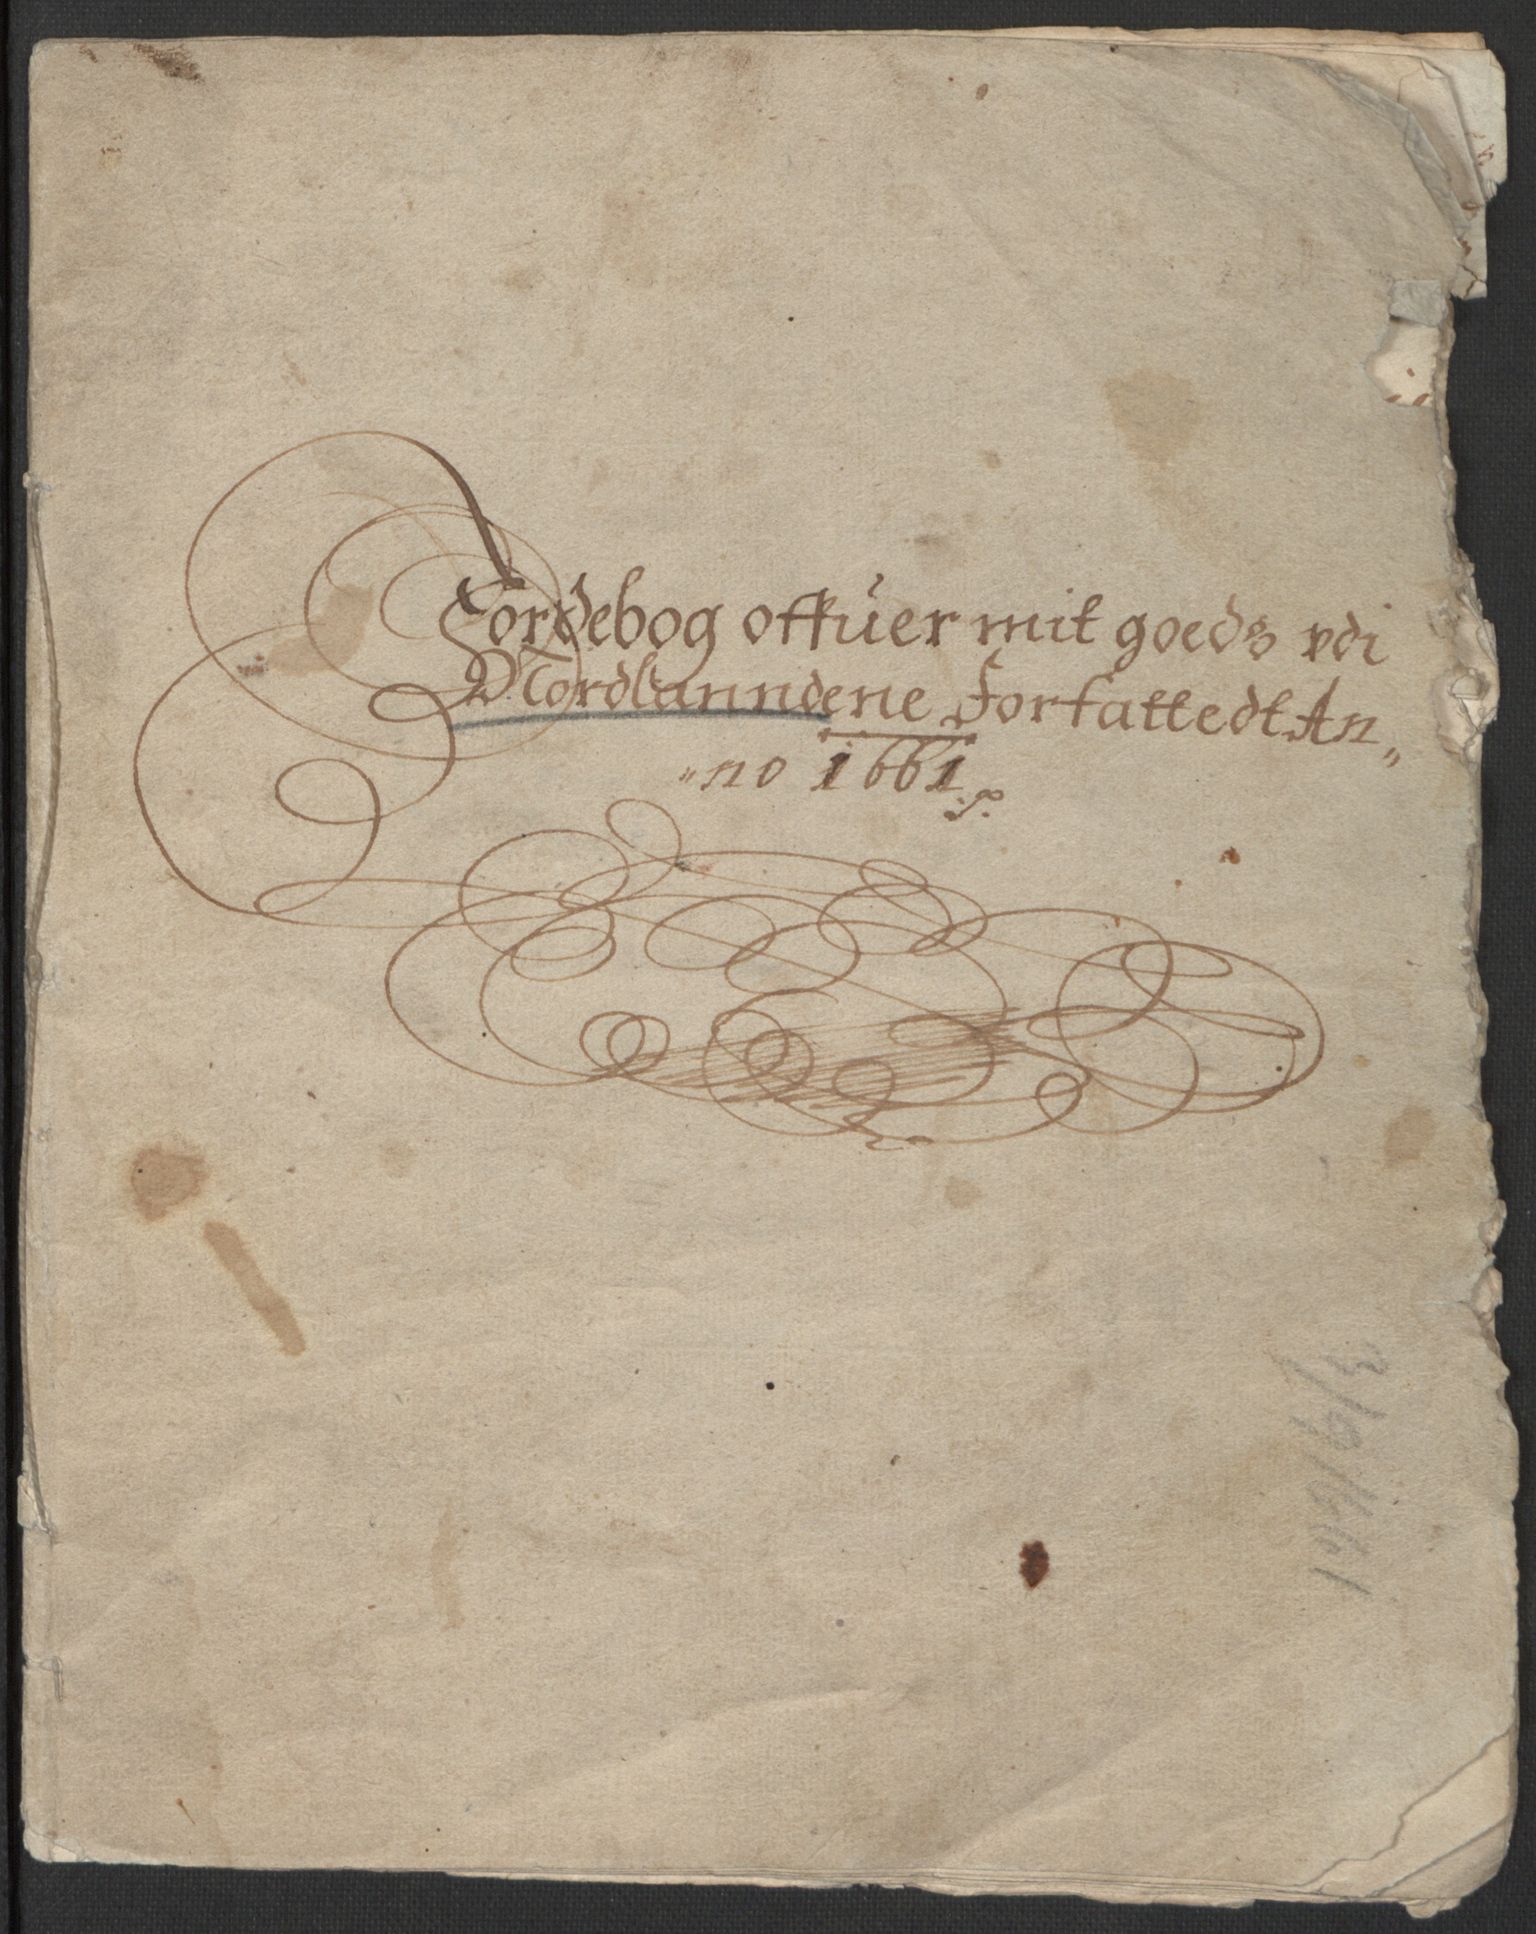 Jordebog offuer mit goeds vdi
Nordlanndene Forfattedt An„
„no 1661